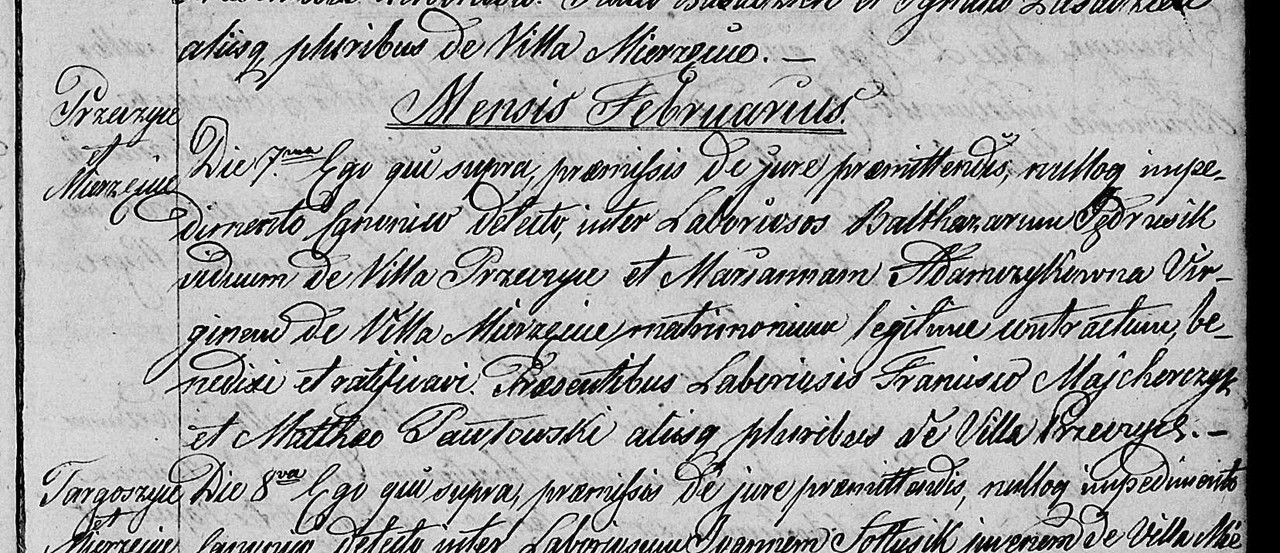 aliisq pluribus de Villa Mierzęcice. —
Mensis Februarius.
Przeczyce
et
Mierzęcice
Die 7ma Ego qui supra, præmissis de jure præmittendis, nulloq impe-
dimento Canonico detecto, inter Laboriosos Balthazarum Jędrusik
viduum de Villa Przeczyce et Mariannam Adamczykowna Vir-
ginem de Villa Mierzęcice matrimonium legitime contractum, be-
nedixi et ratificavi. Præsentibus Laboriosis Francisco Majcherczyk
et Mattheo Pawłowski aliisq pluribus de Villa Przeczyce. —
Targoszyce
et
Mierzęcice
Die 8va Ego qui supra, præmissis de jure præmittendis, nulloq impedimento
Canonico detecto inter Laboriosum Joannem Sołtysik juvenem de Villa Mie